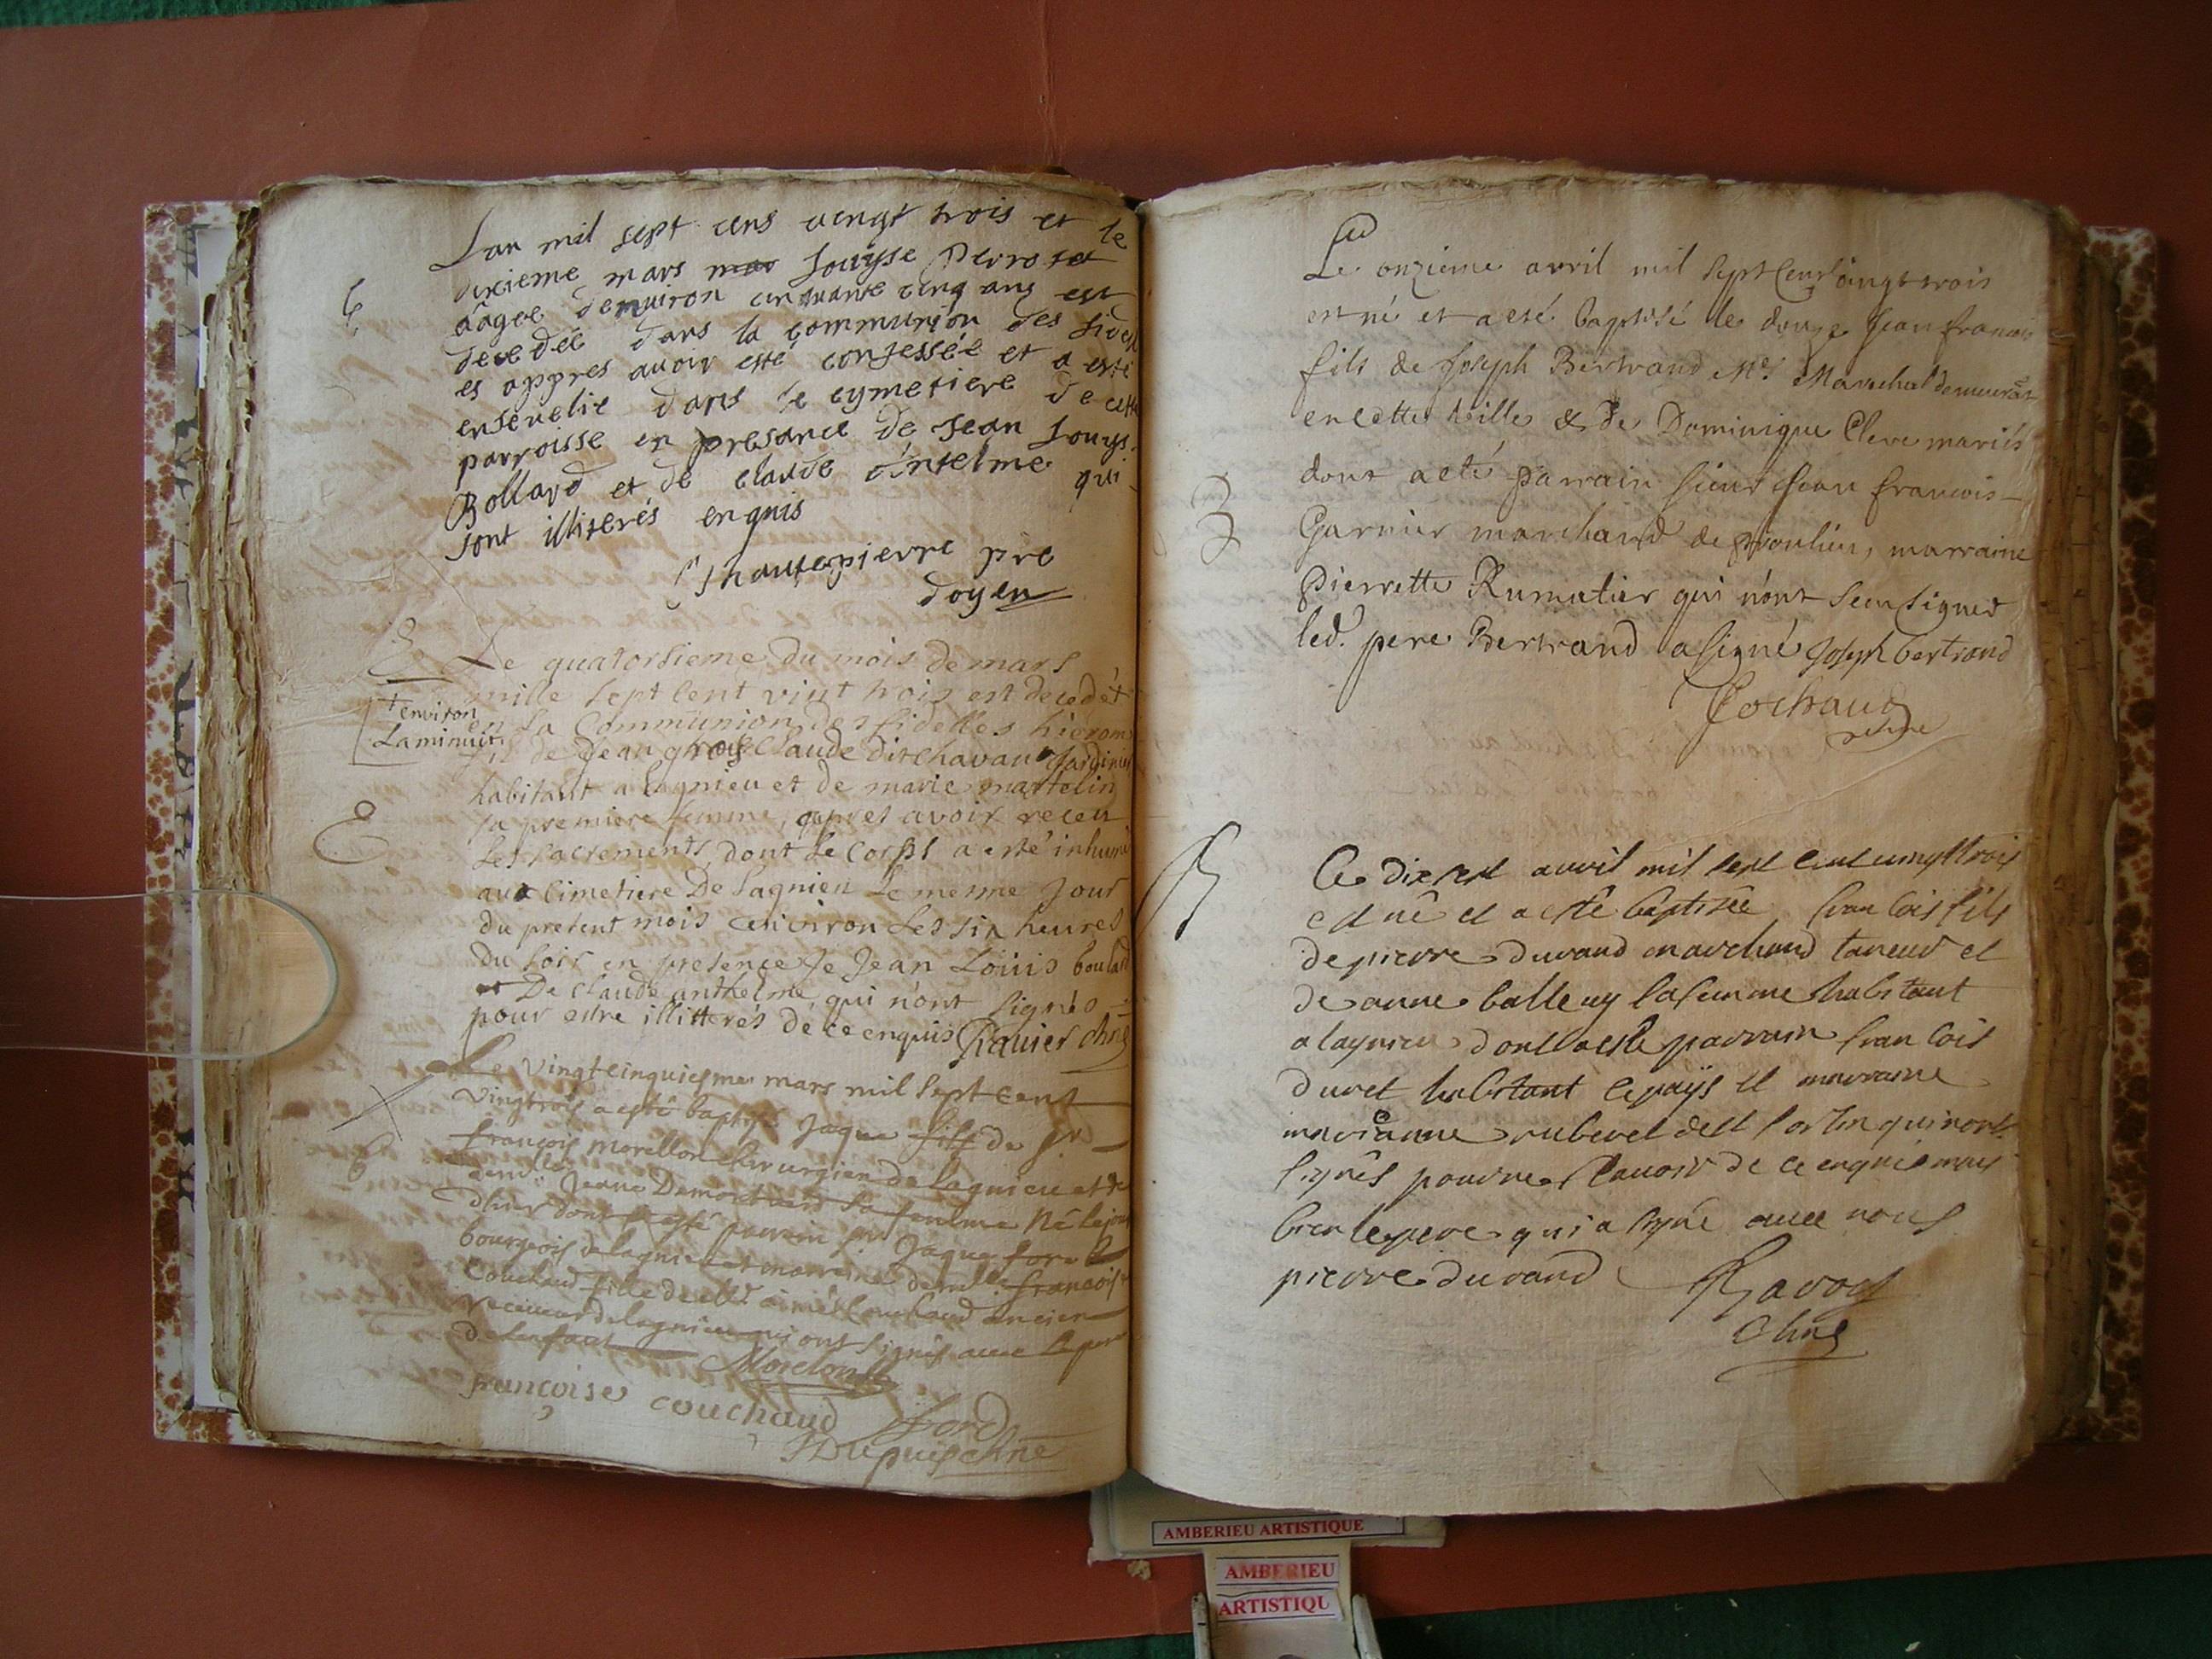 Lan mil sept cens vengt trois et le
dixieme mars mar Louyse Perro
aagee denuiron cinquante cinq ans est
decedée dans la communion des fidell
es appres auoir esté confessée et a esté
enseuelie dans le cymetiere de cette
parroisse en presance de Jean Louys
Bollard et de claude Antelme qui
sont illiterés enquis
hautepierre pre
doyen
Le quatorsieme du mois de mars
mille sept cent vint trois est decedét
environ
la minuit
en la Communion des fidelles hierom
fils de Jean gros Claude dit chavan Jardinier
habitant a lagnieu et de marie martelin
sa premiere femme, apres avoir receu
les sacrements, dont le corps a esté inhumé
au cimetiere De lagnieu le mesme Jour
du present mois environ les six heures
du soir en presence de Jean Loüis boulard
et De claude anthelme, qui n'ont signés
pour estre illitterés de ce enquis Ravier chne
Le vingtcinquiesme mars mil sept cent
vingtrois a esté baptisé Jaque fils de sr
françois morellon chirurgien de lagnieu et de
demlle Jeane Demont sa femme Né le jour
dhier dont a esté parrain sr Jaque ford
bourgeois de lagnieu et marraine demlle francoise
Couchaud fille de aimé Couchaud ancien
receueur de lagnieu qui ont signés auec le pere
de lenfant
Morelon
françoise couchaud
ford
Dupuis chne
Le onzieme avril mil sept cent vingt trois
est né et a eté baptisé le douze Jean francois
fils de Joseph Bertrand Me Marechal demeurant
en cette ville & de Dominique Cleve mariés
dont a eté parrain sieur Jean francois
Garnier marchand de moulin, marraine
Pierrette Rumatier qui n'ont sceu signer
led. pere Bertrand a signé Joseph bertrand
Cochaud
chne
Ce dix sept auvil mil sept cent vingttrois
est né et a esté baptisée francois fils
de pierre durand marchand taneur et
de anne balley sa femme habitant
a lagnieu dont a esté parrain francois
duret habitant le païs et marraine
marianne ruberet qui nont
signés pour ne scauoir de ce enquis mais
bien le pere qui a signé auec nous
pierre durand
Ravoy
Chne
AMBERIEU ARTISTIQUE
AMBERIEU
ARTISTIQU